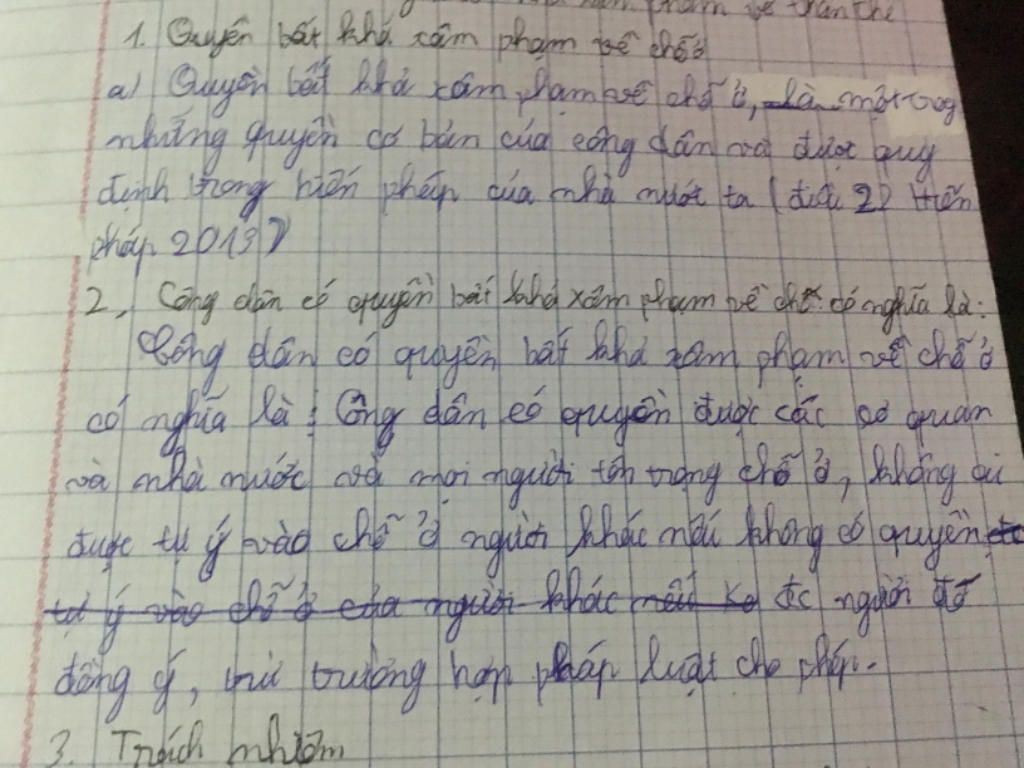 phạm về thân thể
1. Quyền bất khả xâm phạm về chỗ ở
a) Quyền bất khả xâm phạm về chỗ ở, là một trong
những quyền cơ bản của công dân và được quy
định trong hiến pháp của nhà nước ta (điều 22 Hiến
pháp 2013)
2, Công dân có quyền bất khả xâm phạm về chỗ ở có nghĩa là:
Công dân có quyền bất khả xâm phạm về chỗ ở
có nghĩa là: Công dân có quyền được các cơ quan
và nhà nước và mọi người tôn trọng chỗ ở, không ai
được tự ý vào chỗ ở người khác nếu không có quyền đc
tự ý vào chỗ ở của người khác nếu ko đc người đó
đồng ý, trừ trường hợp pháp luật cho phép.
3. Trách nhiệm